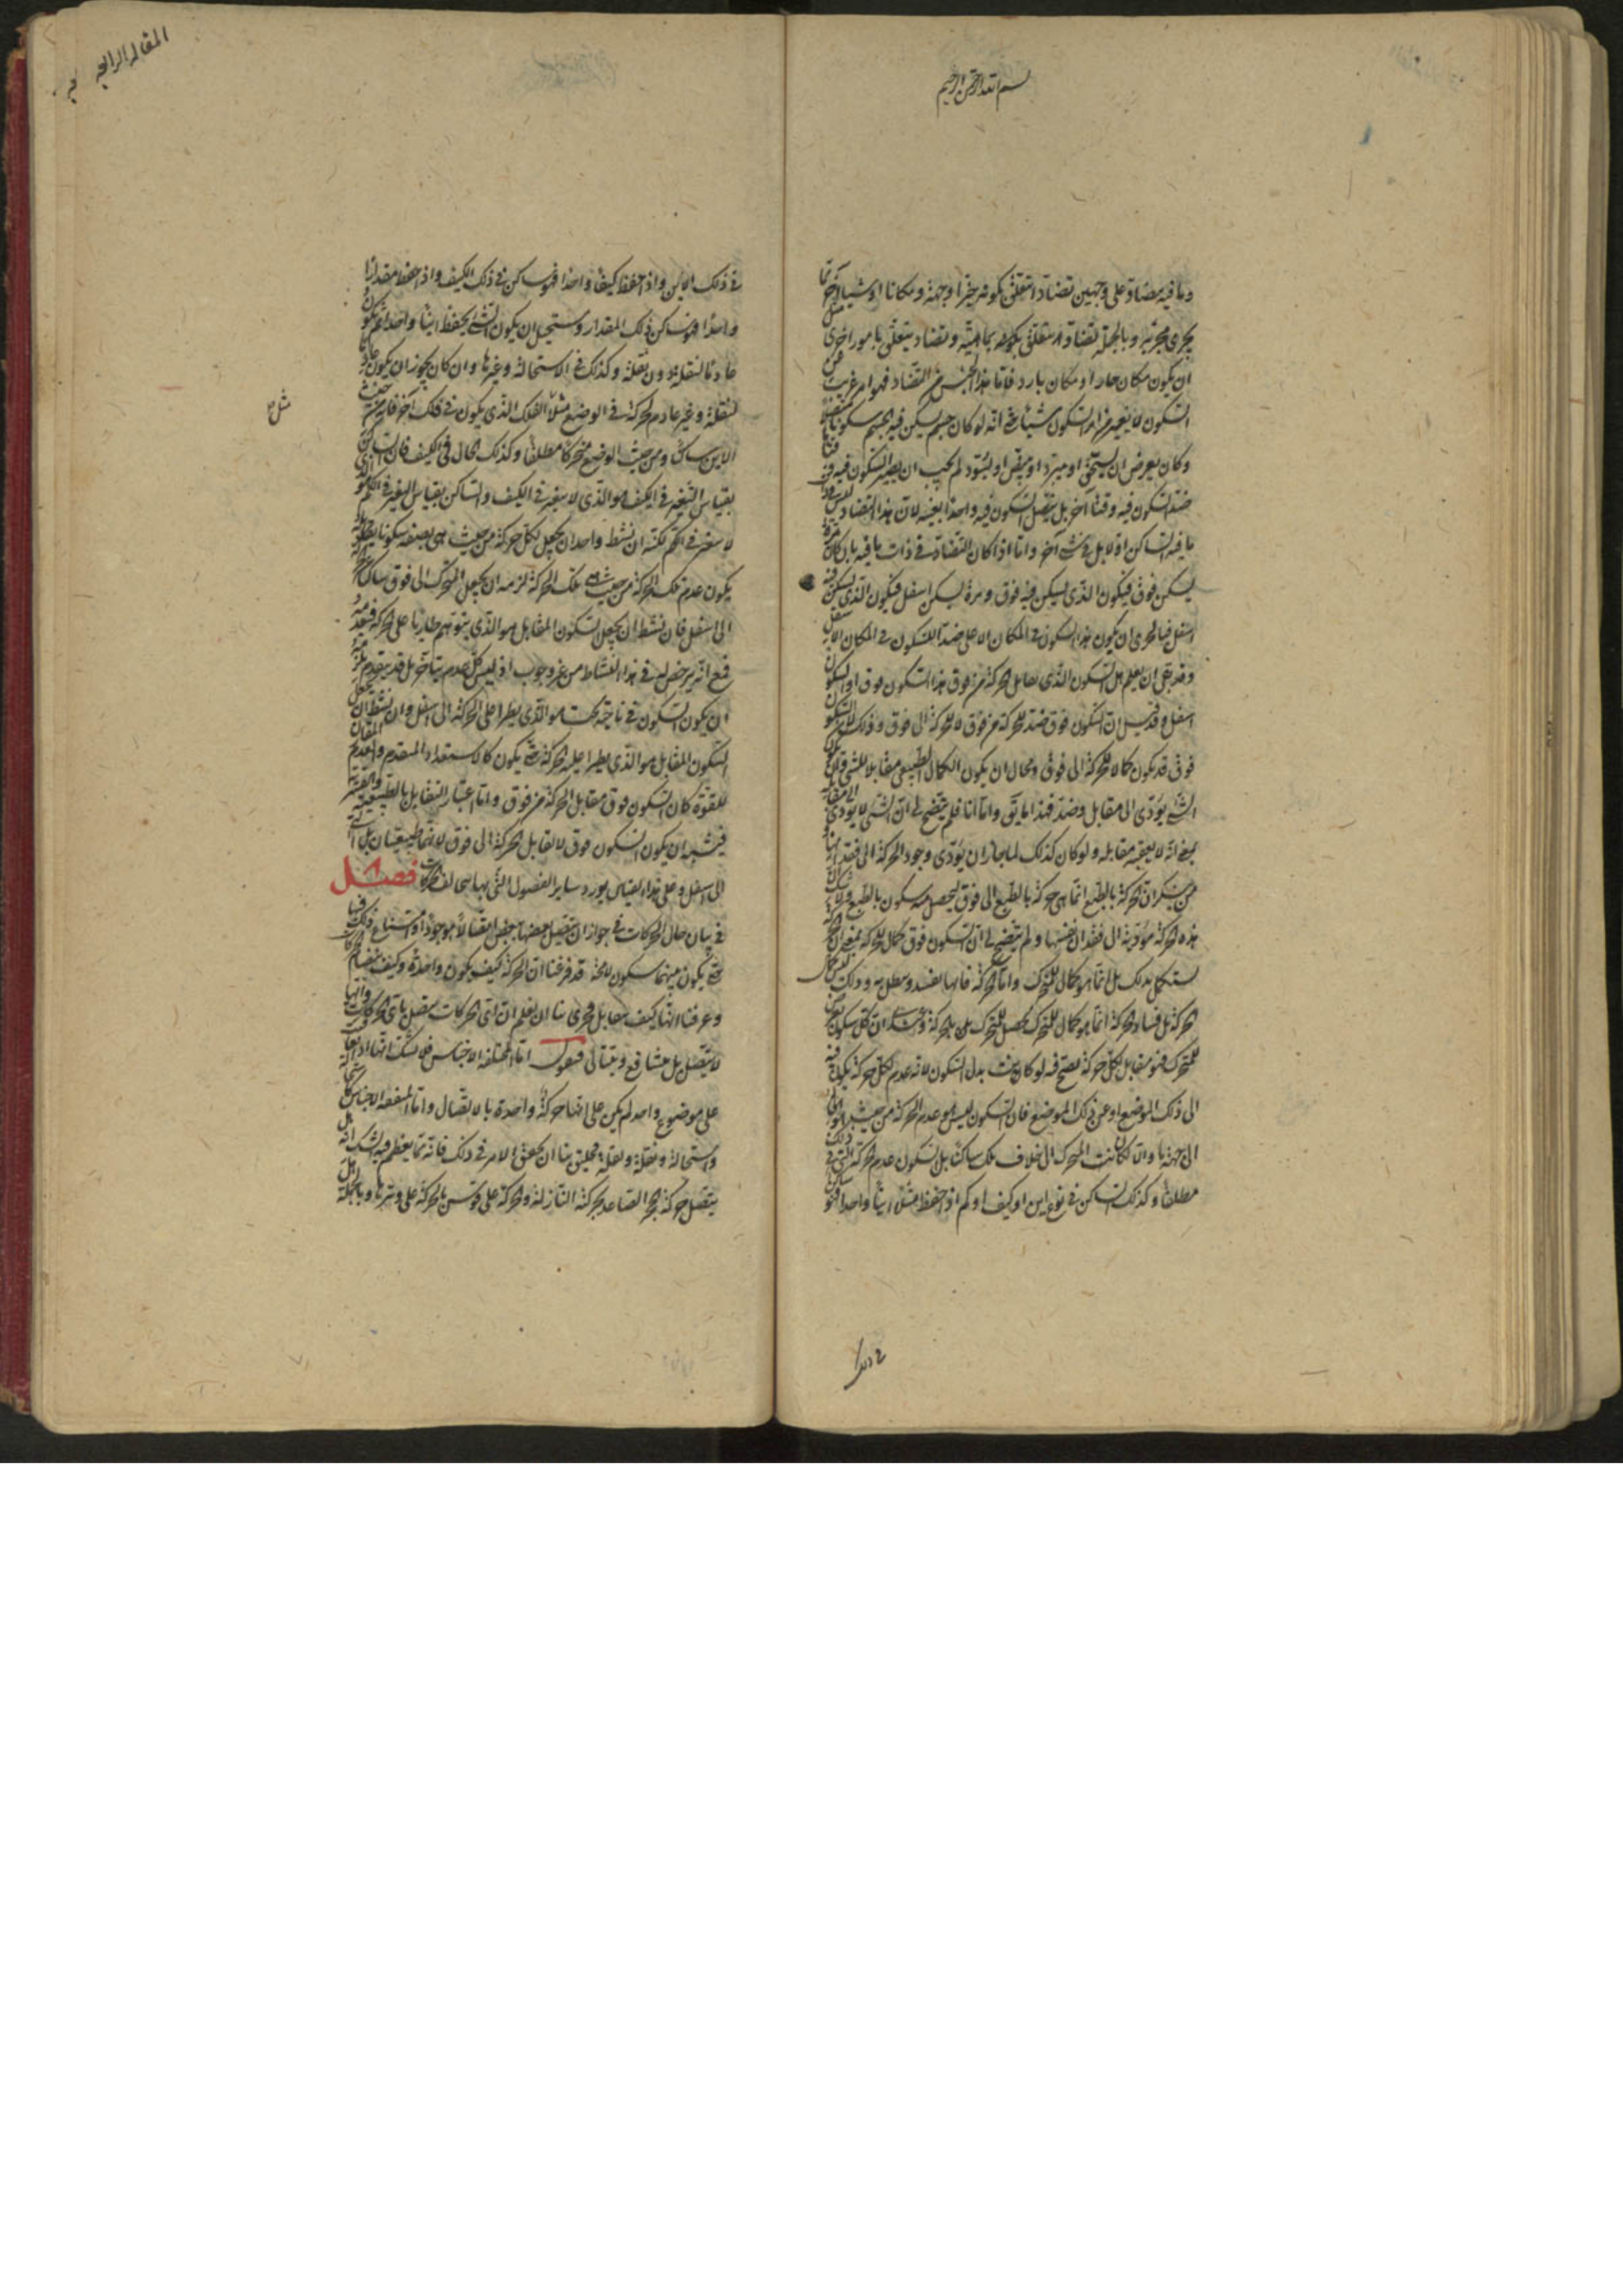 بسم الله الرحمن الرحيم
وما فيه يتضاد على وجهين تضادا يتعلق بكونه حيزا وجهة ومكانا او شيئا آخر مما
يجرى مجريه وبالجملة تضاد يتعلق بكونه بما فيه وتضاد يتعلق بامور اخرى مثل
ان يكون مكان حار او مكان بارد فاما هذا الجنس من التضاد فهو امر غريب من
السكون لا يغير من امر السكون شيئا حتى انه لو كان جسم يسكن فيه الجسم سكونا متصلا
وكان يعرض ان يتسخن او يبرد او يبيض او يسود لم يجب ان يصير السكون فيه وقتا
ضد السكون فيه وقتا آخر بل يتصل السكون فيه واحدا بعينه لان هذا التضاد ليس
ما فيه الساكن اولا بل فى شىء آخر واما اذا كان التضاد فى ذات ما فيه بان كان مرة
يسكن فوق فيكون الذى يسكن فيه فوق ومرة يسكن اسفل فيكون الذى يسكن فيه
اسفل فبالحرى ان يكون هذا السكون فى المكان الاعلى ضدا للسكون فى المكان الاسفل
وقد بقى ان يعلم هل السكون الذى يقابل الحركة من فوق هذا السكون فوق او السكون
اسفل وقد قيل ان السكون فوق ضد للحركة من فوق لا للحركة الى فوق وذلك لان السكون
فوق قد يكون كمالا للحركة الى فوق ومحال ان يكون الكمال الطبيعى مقابلا للشىء
الشىء يؤدى الى مقابل وضد فهذا ما يق واما انا فلم يتضح لى ان الشىء لا يؤدى الى مقابله
بمعنى انه لا يعقبه مقابله ولو كان كذلك لما جاز ان يؤدى وجود الحركة الى فقدانها
من ينكر ان الحركة بالطبع انما هى حركة بالطبع الى فوق ليحصل منه سكون بالطبع
هذه الحركة مؤدية الى فقدان نفسها ولم يتضح لى ان السكون فوق كمال للحركة بمعنى ان الحركة
تستكمل بذلك بل انما هو كمال للمتحرك واما الحركة فانها تفسد وتبطل به وذلك ليس كمال
الحركة بل فساد الحركة انما هو كمال للمتحرك يحصل للمتحرك بالحركة
للمتحرك فهو مقابل لكل حركة تصح فيه لو كانت بدل السكون لانه عدم لكل حركة يكون فيه
الى ذلك الموضع او عن ذلك الموضع فان السكون ليس هو عدم الحركة من حيث هو
الى جهة ما والا لكانت المتحرك الى خلاف تلك ساكنا بل السكون عدم الحركة التى فى ذلك
مطلقا وكذلك الساكن فى نوع اين او كيف او كم اذا حفظ مثلا اينا واحدا فهو ساكن
٢ دار
المقاله الرابعه
فى ذلك الاين واذا حفظ كيفا واحدا فهو ساكن فى ذلك الكيف واذا حفظ مقدارا
واحدا فهو ساكن ذلك المقدار ويستحيل ان يكون الشىء يحفظ اينا واحدا ثم يكون
عادما لنقلة دون نقلة وكذلك فى الاستحالة وغيرها وان كان يجوز ان يكون عادما
لنقلة وغير عادم لحركة فى الوضع مثلا الفلك الذى يكون فى فلك آخر فانه من حيث
مثل
الاين ساكن ومن حيث الوضع متحركا مطلقا وكذلك الحال فى الكيف فان الساكن
بقياس التغير فى الكيف هو الذى لا يتغير فى الكيف والساكن بقياس التغير فى الكم هو الذى
لا يتغير فى الكم لكنه ان نشط واحد ان يجعل لكل حركة من حيث هى بصفة سكونا يقابله
يكون عدم تلك الحركة من حيث هى تلك الحركة لزمه ان يجعل المتحرك الى فوق ساكنا
الى اسفل فان نشط ان يجعل السكون المقابل هو الذى يتوهم طاريا على الحركة
فمع انه يترخص له فى هذا النشاط من غير وجوب اذ ليس كل عدم يتأخر بل قد يتقدم يلزمه
ان يكون السكون فى ناحية تحت هو الذى يطرأ على الحركة الى اسفل وان نشط ان يجعل
السكون المقابل هو الذى يطرأ عليه الحركة حتى يكون كالاستعداد المتقدم
للقوة كان السكون فوق مقابل الحركة من فوق واما اعتبار التقابل بالطبيعية والقسرية
فيشبه ان يكون السكون فوق لا يقابل الحركة الى فوق لانهما طبيعيتان بل التى
الى اسفل وعلى هذا القياس يورد ساير الفصول التى بها يتخالف الحركات فصل
فى بيان حال الحركات فى جواز ان يتصل بعضها ببعض اتصالا موجودا او امتناع ذلك فيها
حتى يكون بينهما سكون لا محة قد فرغنا ان الحركة كيف يكون واحدة وكيف يتضاد الحركات
وعرفنا انها كيف يتقابل وحرى بنا ان نعلم ان اى الحركات يتصل باى الحركات وانها
لا يتصل بل يتشافع ويتتالى فنقول اما المختلفة الاجناس فلا نشك انها اذا تعاقبت
على موضوع واحد لم يكن على انها حركة واحدة بالاتصال واما المتفقه الاجناس كاستحالة
واستحالة ونقلة ونقلة فخليق بنا ان نحقق الامر فى ذلك فانه مما يعظم فيه الشك انه هل
يتصل حركة الحجر الصاعد بحركته النازلة والحركة على قوس بالحركة على وترها وبالجملة هل